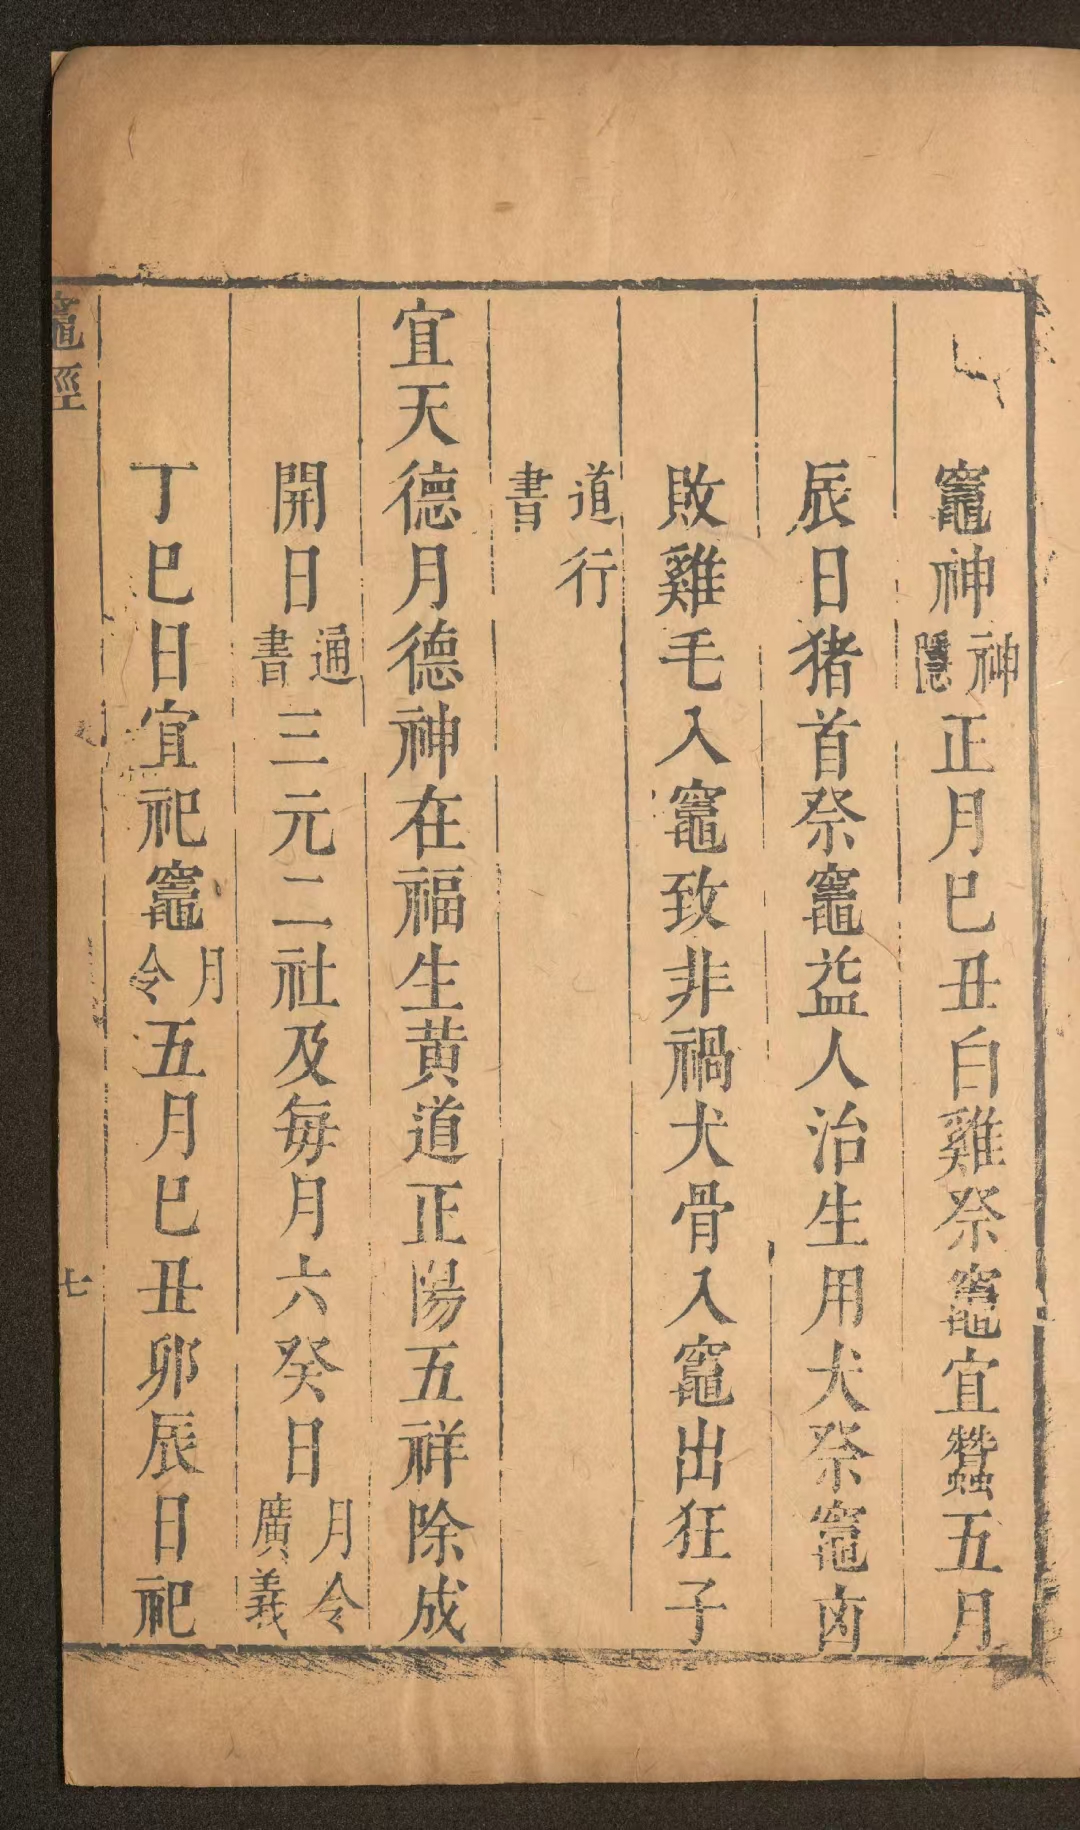 竈神神隱正月巳丑白雞祭竈宜蠶五月
辰日猪首祭竈益人治生用犬祭竈凶
敗雞毛入竈致非禍犬骨入竈出狂子
道行書
宜天德月德神在福生黄道正陽五祥除成
開日通書三元二社及每月六癸日月令廣義
丁巳日宜祀竈月令五月巳丑卯辰日祀
竈經
七